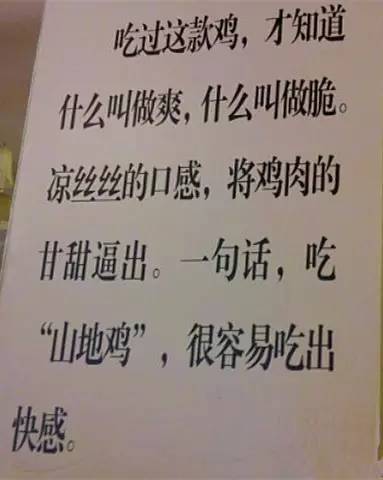 吃过这款鸡，才知道
什么叫做爽，什么叫做脆。
凉丝丝的口感，将鸡肉的
甘甜逼出。一句话，吃
“山地鸡”，很容易吃出
快感。